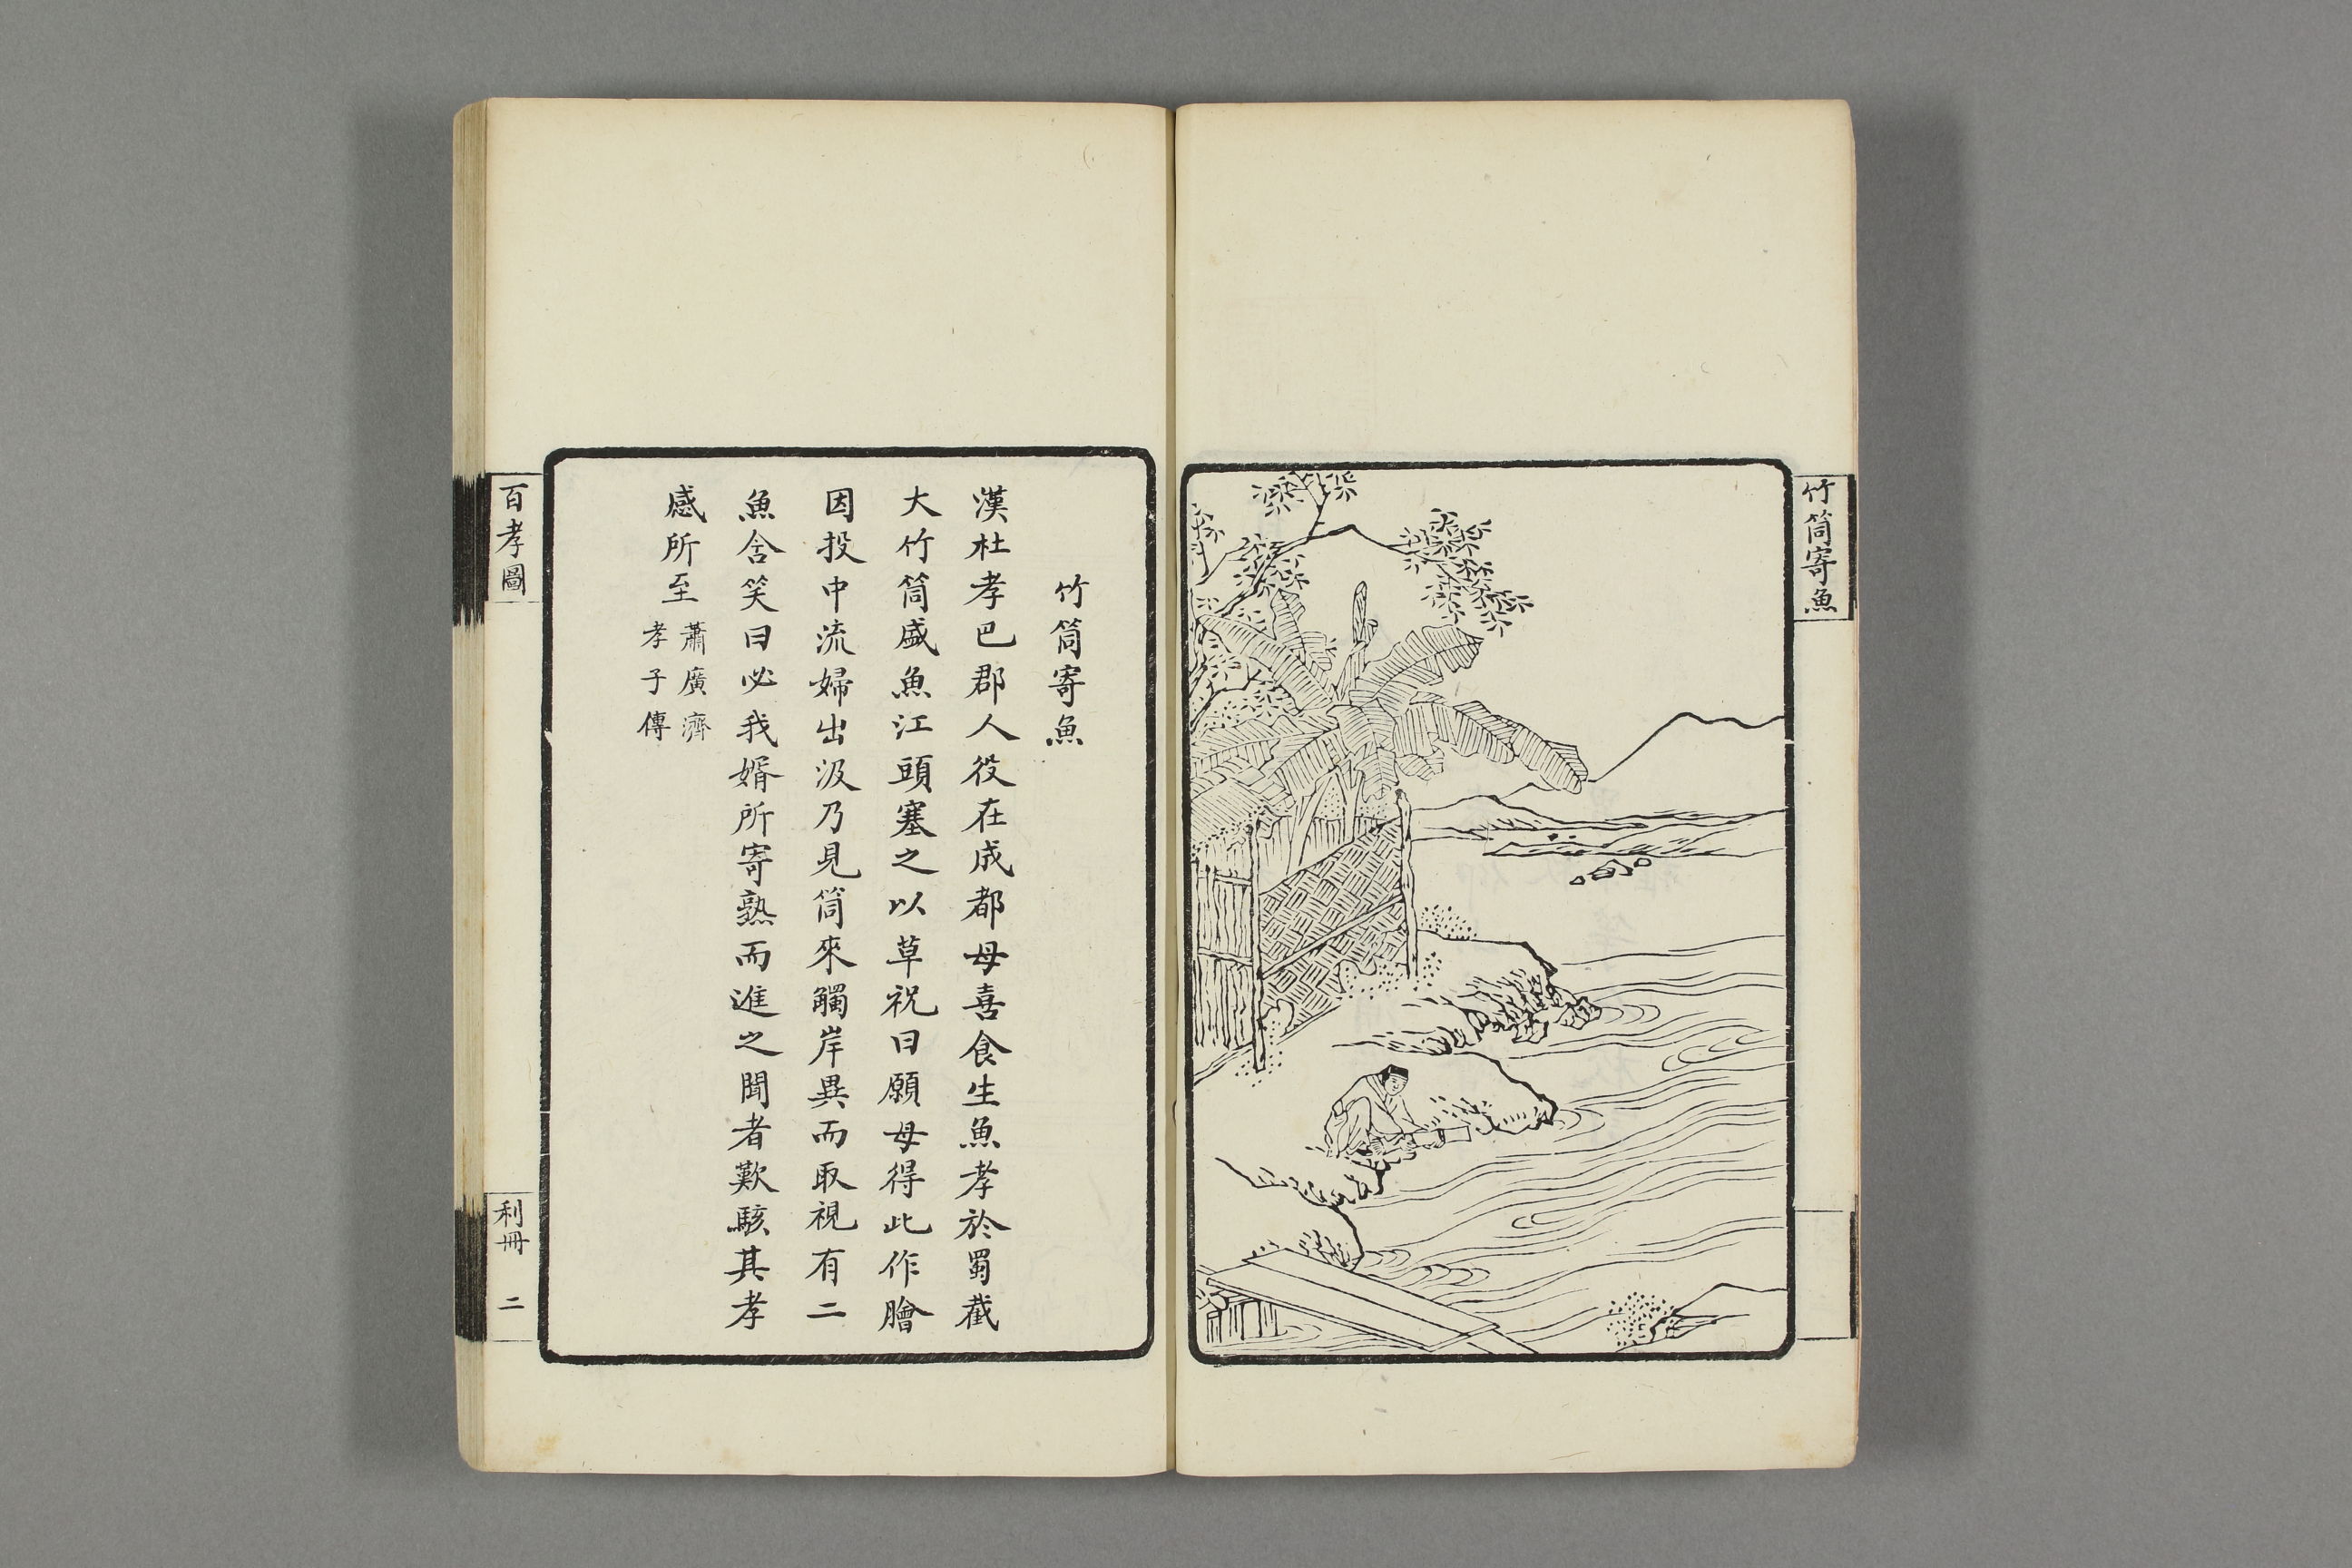 竹筒寄魚
竹筒寄魚
漢杜孝巴郡人役在成都母喜食生魚孝於蜀截
大竹筒盛魚江頭塞之以草祝曰願母得此作膾
因投中流婦出汲乃見筒來觸岸異而取視有二
魚含笑曰必我婿所寄熟而進之聞者歎駭其孝
感所至
蕭廣濟
孝子傳
百孝圖
利冊
二